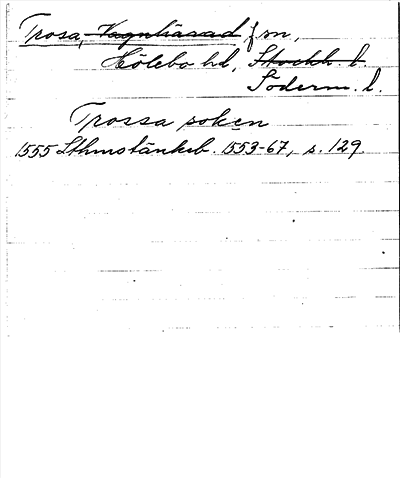 Trosa, Vagnhärad fm,
Hölebo hd, Stockh. l.
Söderm. l.
Trossa soken
1555 Sthms tänkeb. 1553-67, s. 129.